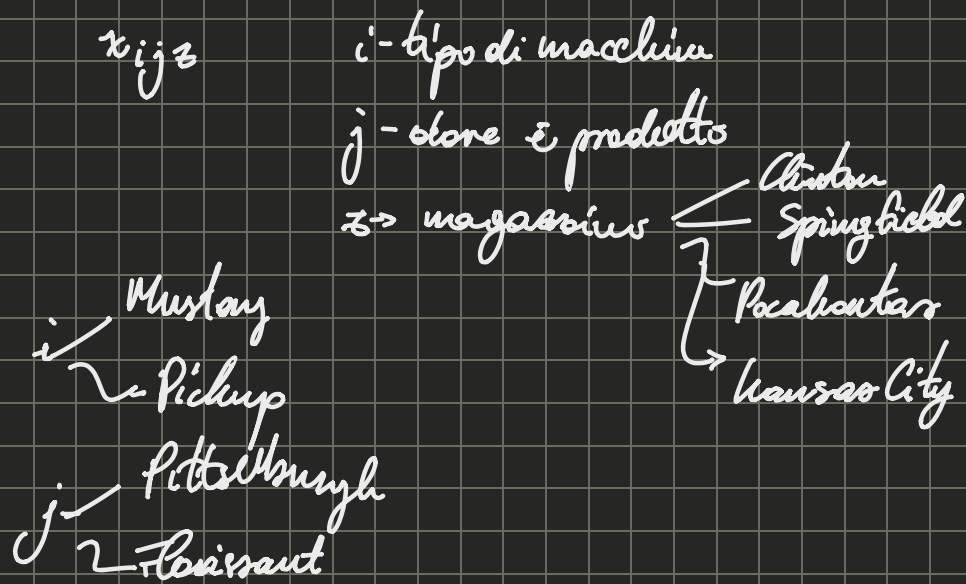 x i j z
i - tipo di macchina
j - dove è prodotto
z → magazzino
Clinton
Springfield
Pocahontas
Kansas City
i
Mustang
Pickup
j
Pittsburgh
Florissant